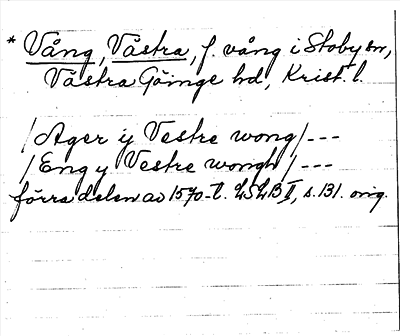 * Vång, Västra, f. vång i Stoby sn,
Västra Göinge hd, Krist. l.
/Ager ÿ Vestre wong/---
/Eng y Vestre wongh/---
förra delen av 1570-t. LSLB II, s. 131. orig.